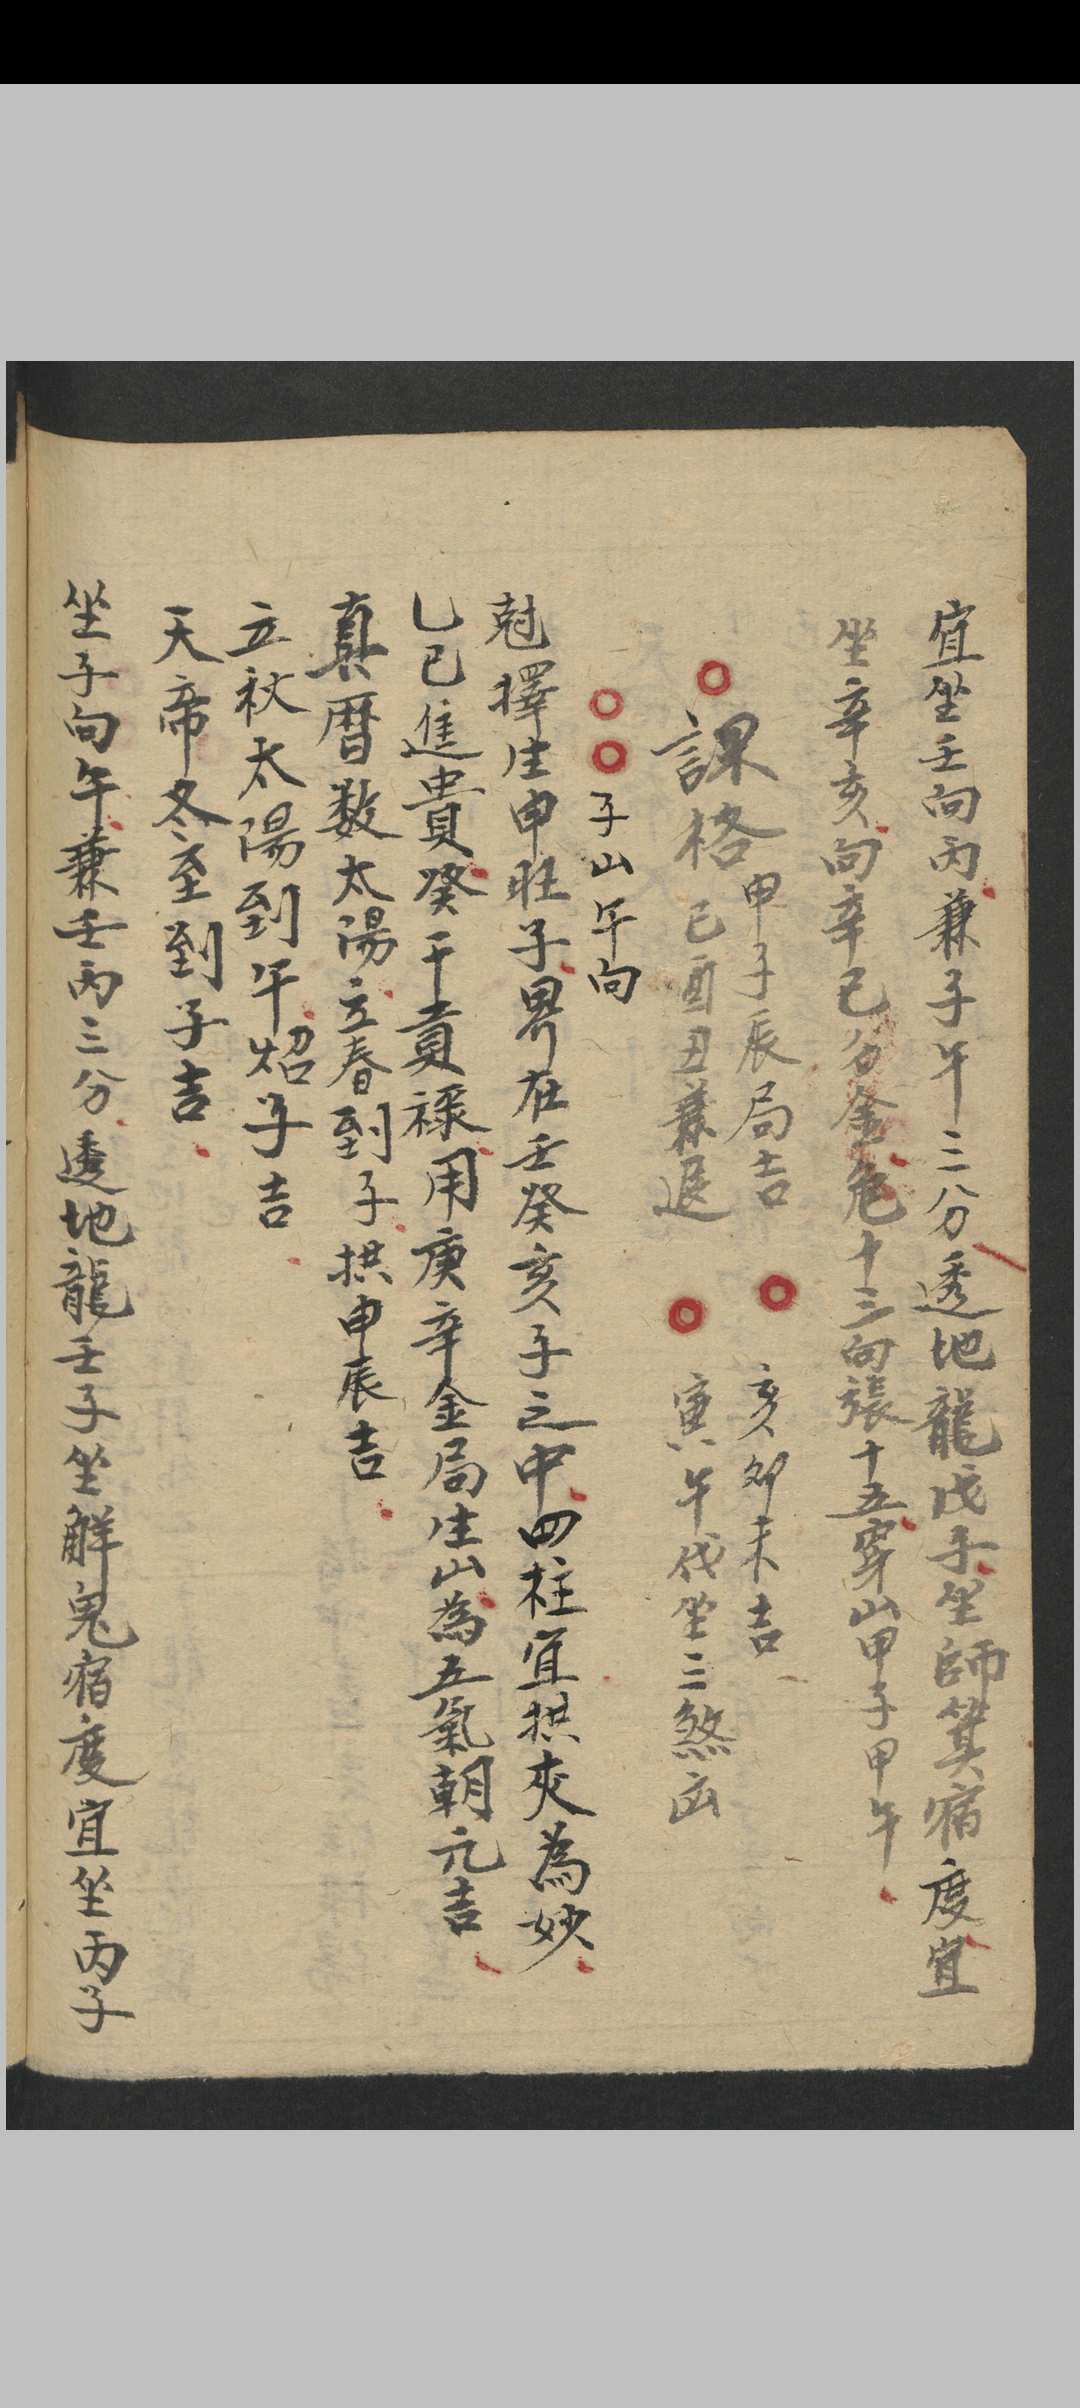 宜坐壬向丙兼子午三分透地龍戊子坐師箕宿度宜
坐辛亥向辛巳分金危十三向張十五穿山甲子甲午
課格
申子辰局吉
巳酉丑兼退
亥卯未吉
寅午伐坐三煞凶
子山午向
尅擇生申旺子界在壬癸亥子之中四柱宜拱夾為妙
乙巳進貴癸干貢祿用庚辛金局生山為五氣朝元吉
真曆数太陽立春到子拱申辰吉
立秋太陽到午炤子吉
天帝冬至到子吉
坐子向午兼壬丙三分透地龍壬子坐觧鬼宿度宜坐丙子